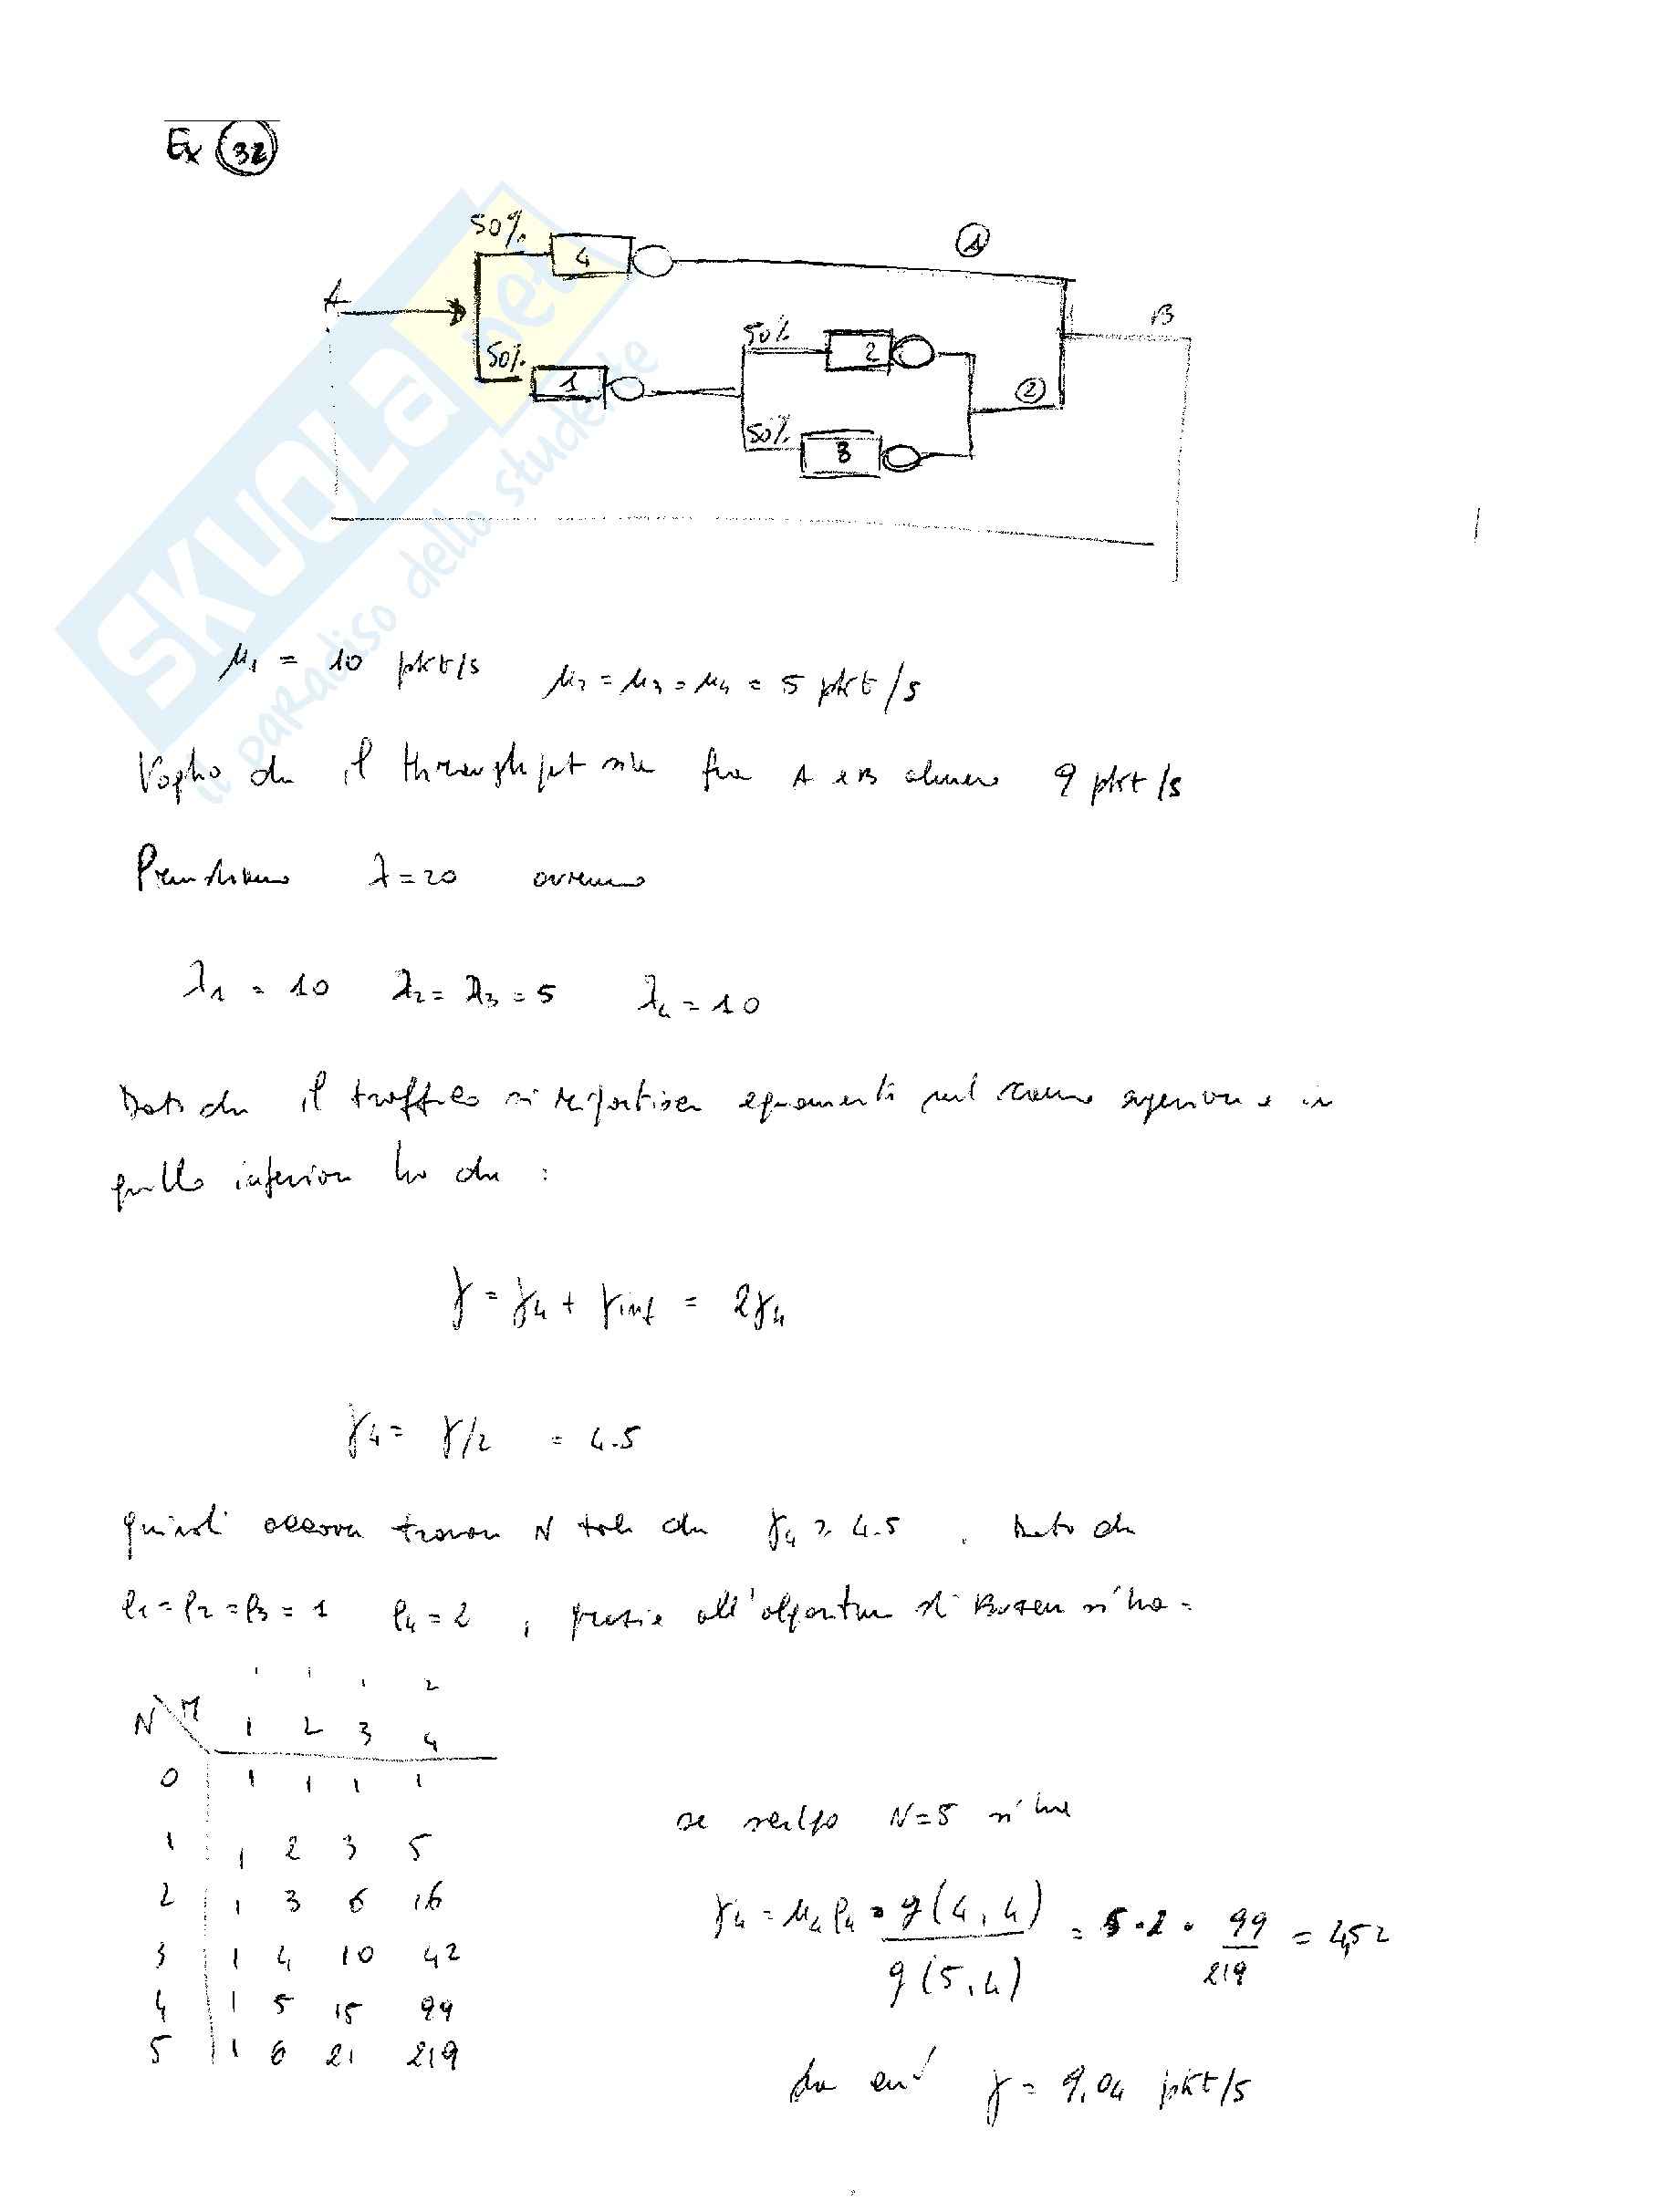 Ex 32
50%
4
1
A
B
50%
2
50%
1
2
50%
3
SKUOLA.net
il paradiso dello studente
μ1 = 10 pkt/s μ2 = μ3 = μ4 = 5 pkt/s
Voglio che il throughput sia fra A e B almeno 9 pkt/s
Prendiamo λ=20 avremo
λ1 = 10 λ2 = λ3 = 5 λ4 = 10
Dato che il traffico si ripartisce equamente sul ramo superiore e in
quello inferiore ho che :
γ = γ4 + γinf = 2γ4
γ4 = γ/2 = 4.5
quindi occorre trovare N tale che γ4 ≥ 4.5 . Dato che
ρ1 = ρ2 = ρ3 = 1 ρ4 = 2 , grazie all'algoritmo di Buzen si ha =
1 1 1 2
N M 1 2 3 4
0 1 1 1 1
1 1 2 3 5
2 1 3 6 16
3 1 4 10 42
4 1 5 15 99
5 1 6 21 219
se scelgo N=5 si ha
γ4 = μ4 ρ4 · g(4,4) / g(5,4) = 5·2 · 99 / 219 = 4,52
da cui γ = 9.04 pkt/s